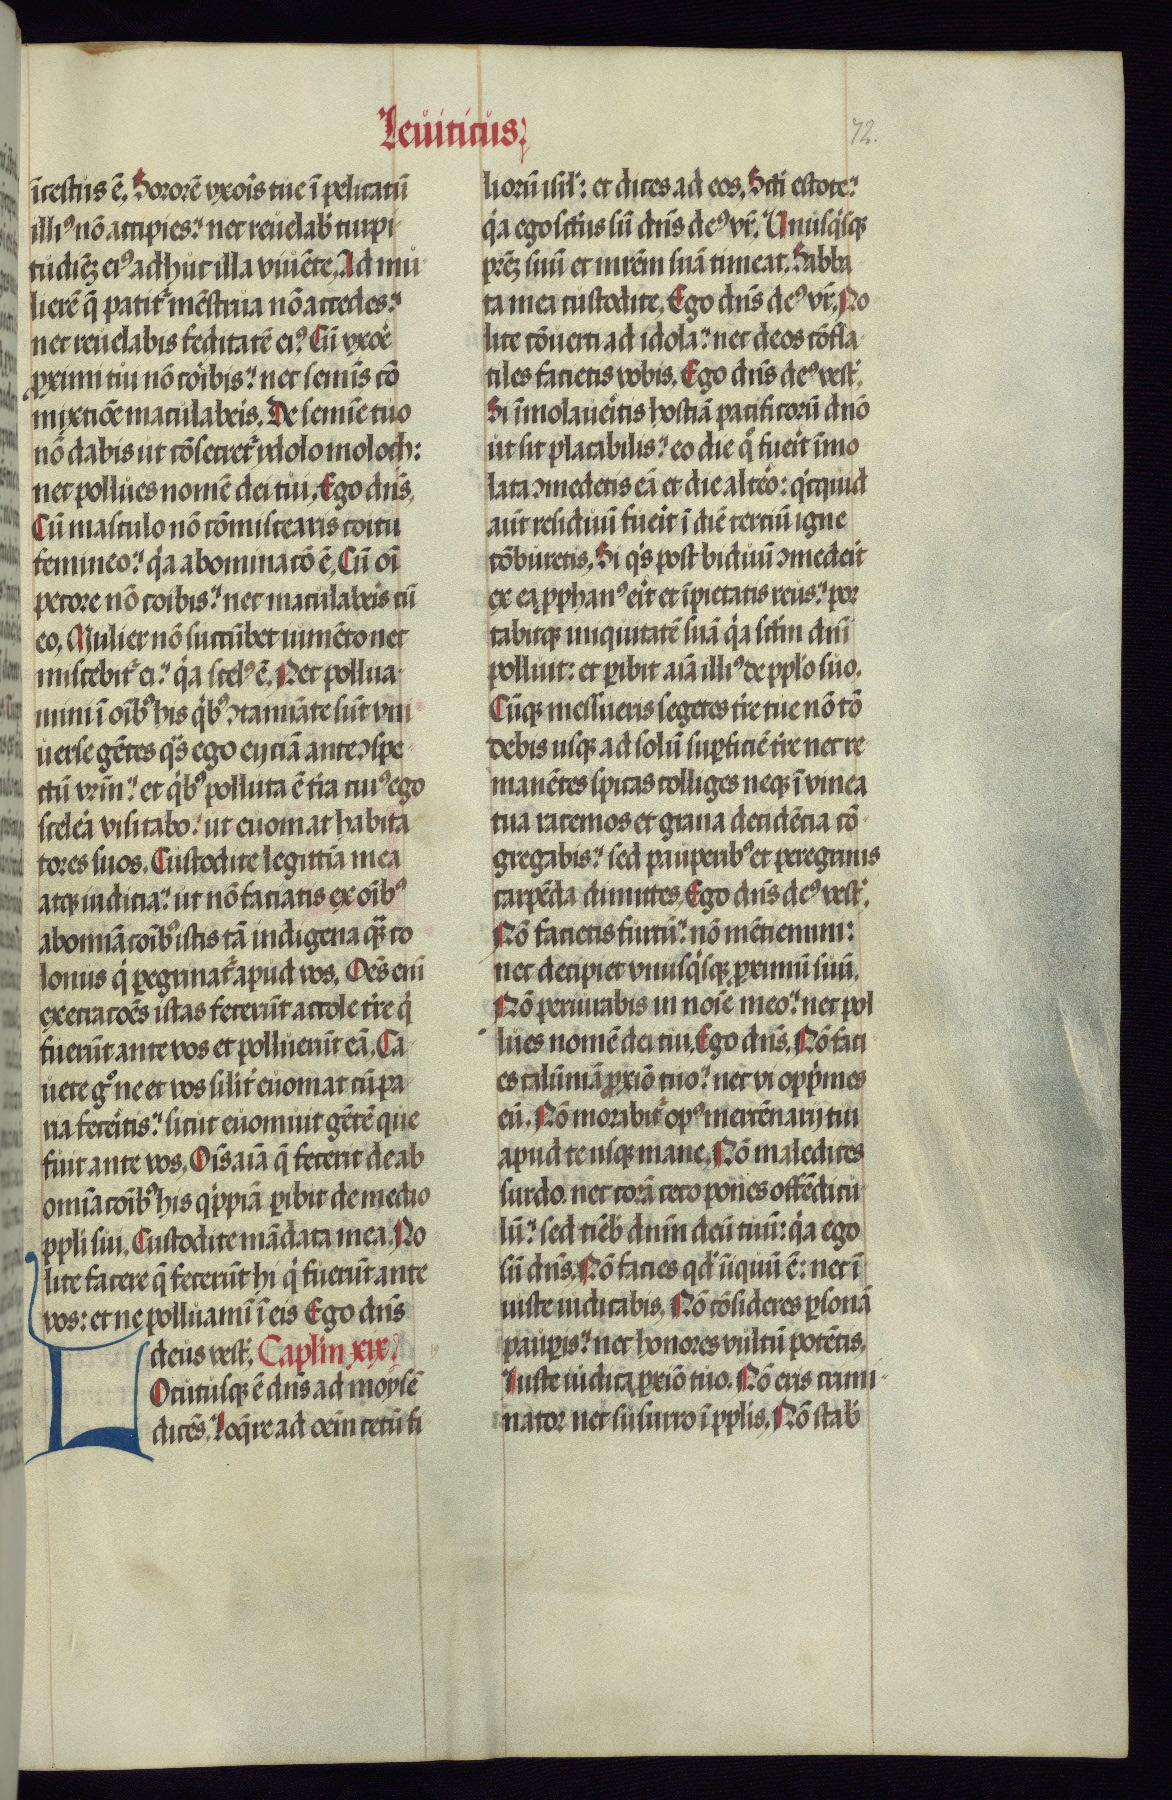 Leuiticus.
72.
īcestus ē. Sororē vxoris tue ī pelicatū
illiꝰ nō accipies: nec reuelab turpi
tudiēꝫ eiꝰ adhuc illa viuēte. Ad mu
lierē q̄ patit᷑ mēstrua nō accedes:
nec reuelabis feditatē eiꝰ. Cū vxoē
ꝓximi tui nō coibis: nec semīs cō
mixtiōe maculaberis. De semīe tuo
nō dabis ut cōsecret᷑ ydolo moloch:
nec pollues nomē dei tui. Ego dn̄s.
Cū masculo nō cōmiscearis coitu
femineo: q̇a abominacō ē. Cū oī
pecore nō coibis: nec maculaberis cū
eo. Mulier nō succūbet iumēto nec
miscebit᷑ ei: q̇a scelꝰ ē. Nec pollua
mini ī oīb᷒ his q̇b᷒ ↄtamīate sūt vni
uerse gētes q̄s ego eijciā ante ↄspe
ctū vrm̄: et q̇b᷒ polluta ē tr̄a cuiꝰ ego
sceleā visitabo: ut euomat habita
tores suos. Custodite legittīa mea
atqꝫ iudicia: ut nō faciatis ex oīb᷒
abomīacōib᷒ istis tā indigena qȝ co
lonus q̇ ꝑegrinat᷑ apud vos. Oēs enī
execracōes istas fecerūt accole tr̄e q̇
fuerūt ante vos et polluerūt eā. Ca
uete gͦ ne et vos silit̄ euomat cū pa
ria feceritis: sicut euomuit gētē que
fuit ante vos. Oīs aīa q̄ fecerit de ab
omīacōib᷒ his q̇ppiā ꝑibit de medio
ppli sui. Custodite mādata mea. No
lite facere q̄ fecerūt hi q̇ fuerūt ante
vos: et ne polluamī ī eis Ego dn̄s
deus vest̄. Caplm xix.
LOcutusqꝫ ē dn̄s ad moysē
dicēs. Loq̄re ad oēm cetū fi
liorū isr̄l: et dices ad eos. Sc̄ti estote:
q̇a ego sc̄tus sū dn̄s deꝰ vr̄. Unusq̇sqꝫ
prēꝫ suū et mrēm suā timeat. Sabba
ta mea custodite. Ego dn̄s deꝰ vr̄. No
lite cōuerti ad idola: nec deos cōfla
tiles facietis vobis. Ego dn̄s deꝰ vest̄.
Si īmolaueritis hostiā pacificorū dn̄o
ut sit placabilis: eo die q̊ fuerit īmo
lata ↄmedetis eā et die alteō: q̇cquid
aūt residuū fuerit ī diē terciū igne
cōburetis. Si q̇s post biduū ↄmederit
ex ea ꝓphanꝰ erit et īpietatis reus: por
tabitqꝫ iniquitatē suā q̇a sctm̄ dn̄i
polluit: et ꝑibit aīa illiꝰ de pplo suo.
Cūqꝫ messueris segetes tr̄e tue nō tō
debis usqꝫ ad solū suꝑficiē tr̄e nec re
manētes spicas colliges neqꝫ ī vinea
tua racemos et grana decidēcia cō
gregabis: sed pauperib᷒ et peregrinis
carpēda dimittes. Ego dn̄s deꝰ vest̄.
Nō facietis furtū: nō mēciemini:
nec decipiet vnusq̇sqꝫ ꝓximū suū.
Nō periurabis in noīe meo: nec pol
lues nomē dei tui. Ego dn̄s. Nō faci
es calūniā ꝓxiō tuo: nec vi opp̄mes
eū. Nō morabit᷑ opꝰ mercēnarij tui
apud te usqꝫ mane. Nō maledices
surdo. nec corā ceco pones offēdicu
lū: sed tīeb dnm̄ deū tuū: q̇a ego
sū dn̄s. Nō facies qd̄ īiquū ē: nec ī
iuste iudicabis. Nō cōsideres ꝑsonā
pauꝑis: nec honores vultū potētis.
Iuste iudica ꝓxiō tuo. Nō eris crimi
nator nec susurro ī pplis. Nō stab